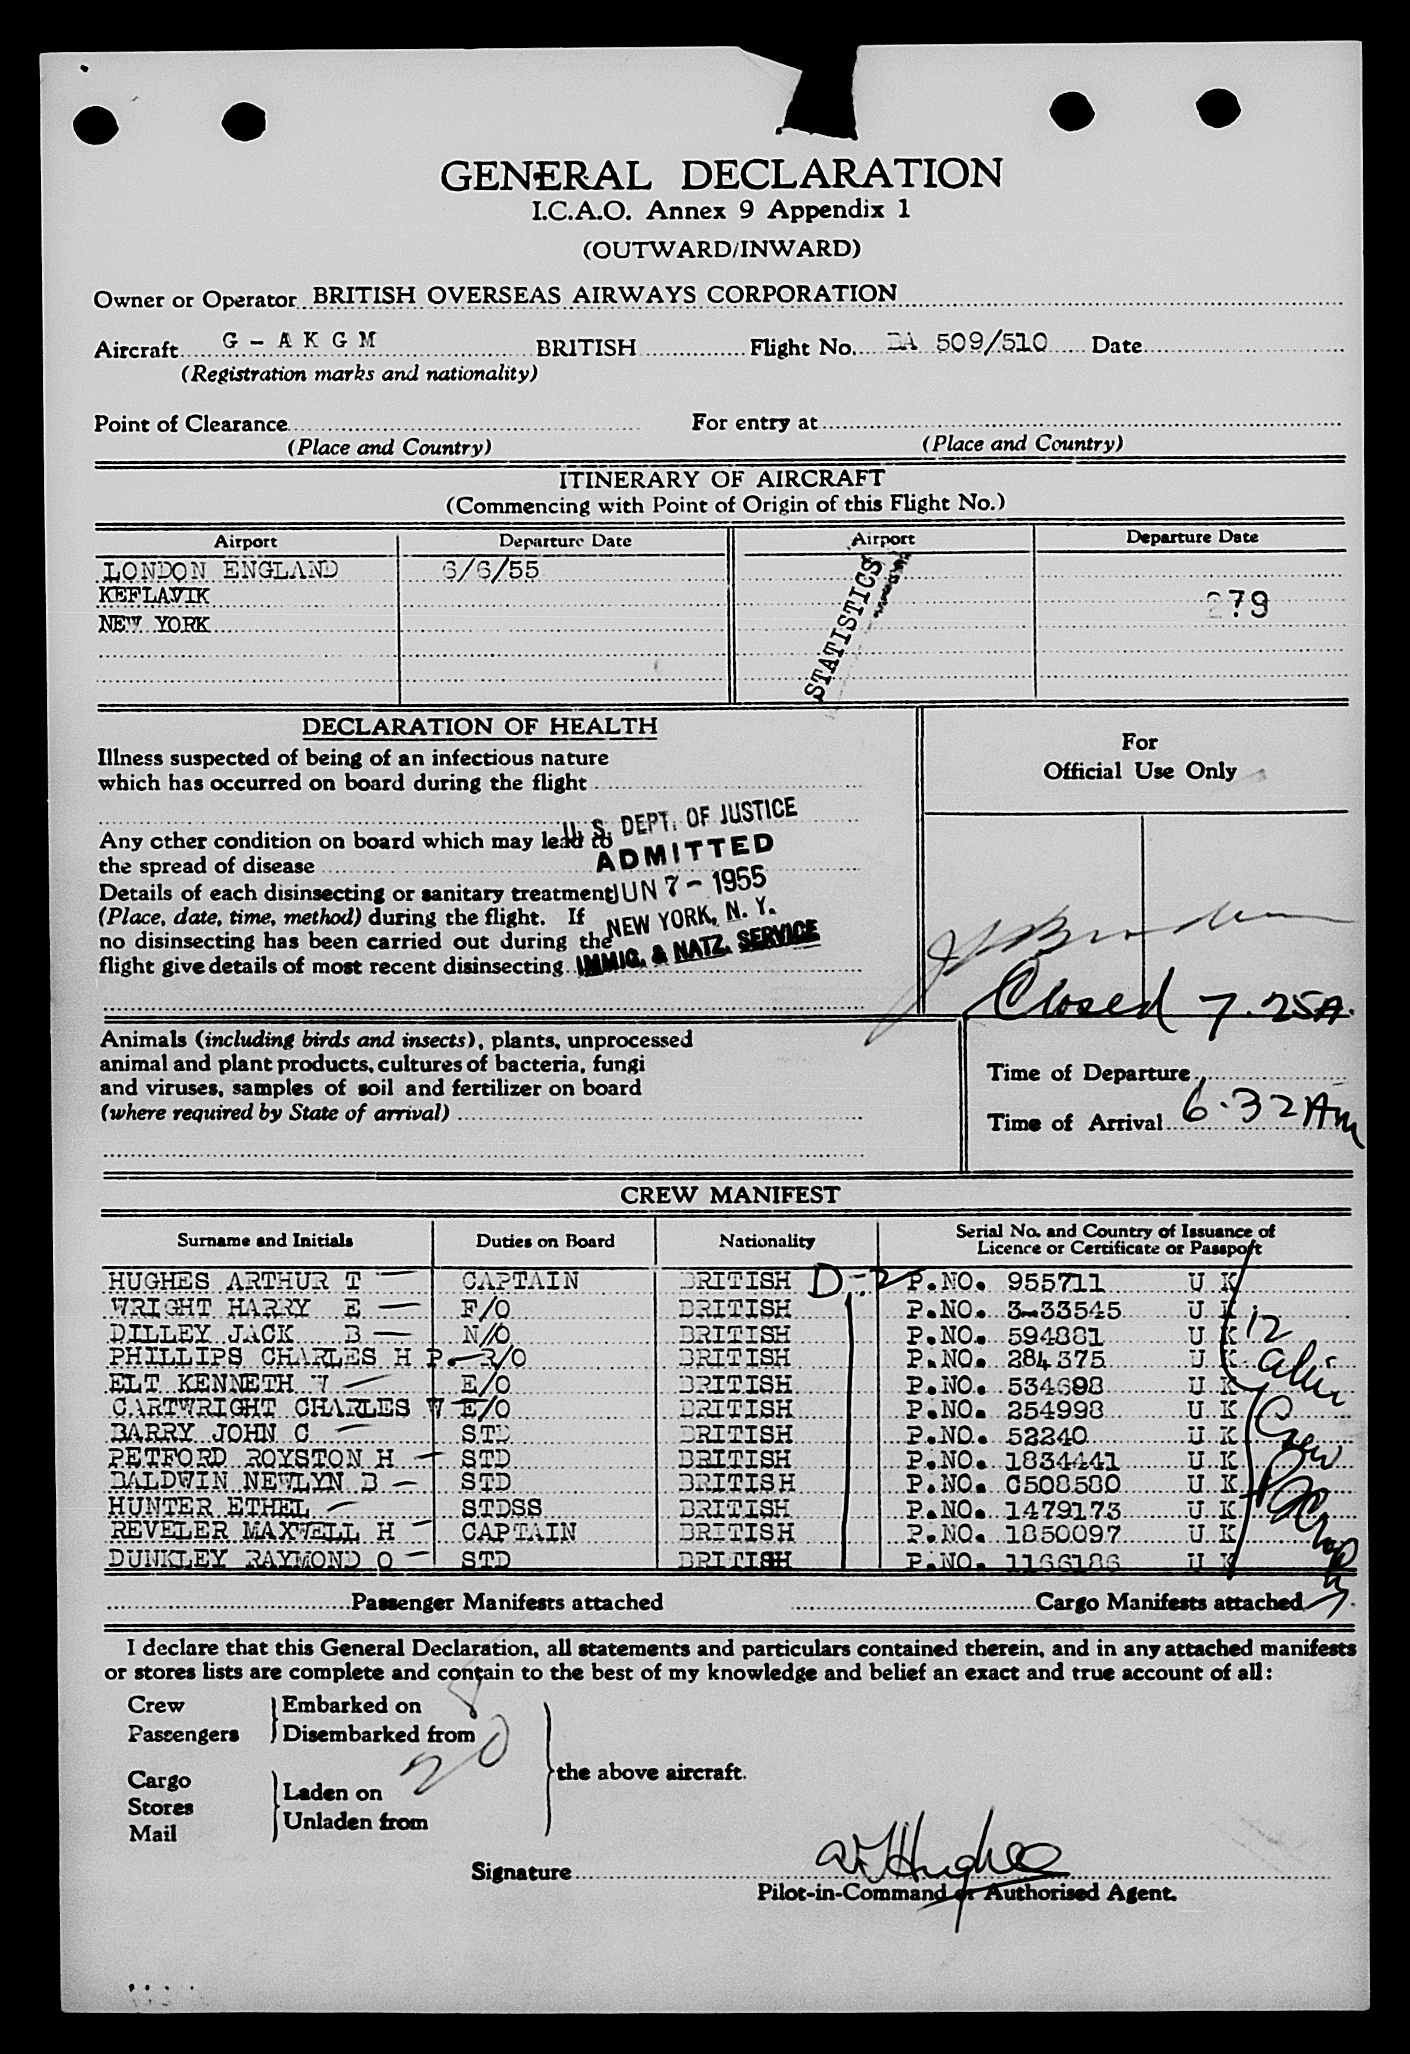 GENERAL DECLARATION
I.C.A.O. Annex 9 Appendix 1
(OUTWARD/INWARD)
Owner or Operator BRITISH OVERSEAS AIRWAYS CORPORATION
Aircraft G - A K G M BRITISH Flight No. BA 509/510 Date
(Registration marks and nationality)
Point of Clearance For entry at
(Place and Country) (Place and Country)
ITINERARY OF AIRCRAFT
(Commencing with Point of Origin of this Flight No.)
Airport Departure Date Airport Departure Date
LONDON ENGLAND 6/6/55
KEFLAVIK 279
NEW YORK
STATISTICS
DECLARATION OF HEALTH
Illness suspected of being of an infectious nature
which has occurred on board during the flight
Any other condition on board which may lead to
the spread of disease
Details of each disinsecting or sanitary treatment
(Place, date, time, method) during the flight. If
no disinsecting has been carried out during the
flight give details of most recent disinsecting
U. S. DEPT. OF JUSTICE
ADMITTED
JUN 7 - 1955
NEW YORK, N. Y.
IMMIG. & NATZ. SERVICE
For
Official Use Only
Closed 7.25A.
Animals (including birds and insects), plants, unprocessed
animal and plant products, cultures of bacteria, fungi
and viruses, samples of soil and fertilizer on board
(where required by State of arrival)
Time of Departure
Time of Arrival 6.32 Am
CREW MANIFEST
Surname and Initials Duties on Board Nationality Serial No. and Country of Issuance of
Licence or Certificate or Passport
HUGHES ARTHUR T — CAPTAIN BRITISH D-2 P.NO. 955711 U K
WRIGHT HARRY E — F/O BRITISH P.NO. 3-33545 U K
DILLEY JACK B — N/O BRITISH P.NO. 594881 U K
PHILLIPS CHARLES H P. — R/O BRITISH P.NO. 284375 U K
ELT KENNETH W — E/O BRITISH P.NO. 534698 U K
CARTWRIGHT CHARLES W — E/O BRITISH P.NO. 254998 U K
BARRY JOHN C — STD BRITISH P.NO. 52240 U K
PETFORD ROYSTON H — STD BRITISH P.NO. 1834441 U K
BALDWIN NEWLYN B — STD BRITISH P.NO. C508580 U K
HUNTER ETHEL — STDSS BRITISH P.NO. 1479173 U K
REVELER MAXWELL H — CAPTAIN BRITISH P.NO. 1850097 U K
DUNKLEY RAYMOND O — STD BRITISH P.NO. 1166186 U K
12
alien
Crew
Passenger Manifests attached Cargo Manifests attached
I declare that this General Declaration, all statements and particulars contained therein, and in any attached manifests
or stores lists are complete and contain to the best of my knowledge and belief an exact and true account of all:
Crew Embarked on
Passengers Disembarked from
20
the above aircraft.
Cargo
Stores Laden on
Mail Unladen from
Signature A T Hughes
Pilot-in-Command or Authorised Agent.